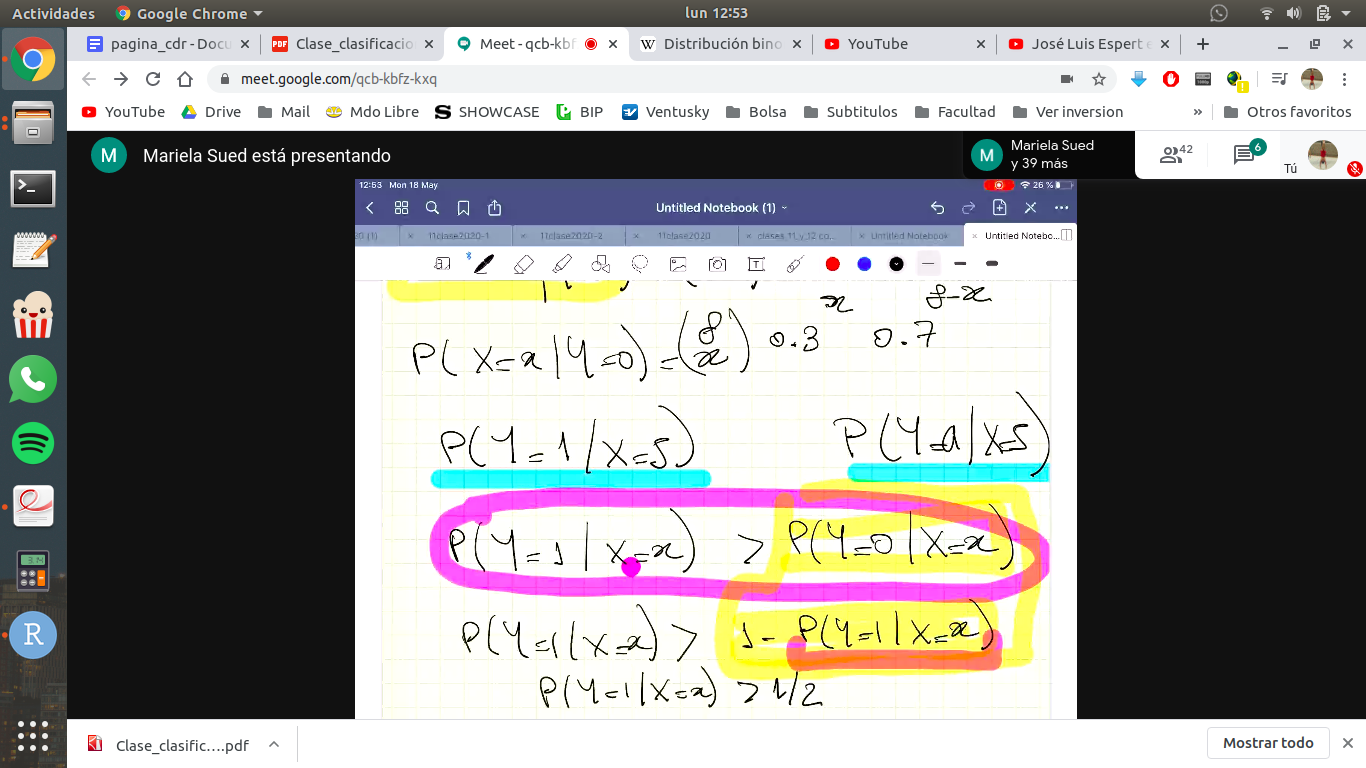 Actividades Google Chrome lun 12:53
pagina_cdr - Docu Clase_clasificacio Meet - qcb-kbf Distribución bino YouTube José Luis Espert e
meet.google.com/qcb-kbfz-kxq
YouTube Drive Mail Mdo Libre SHOWCASE BIP Ventusky Bolsa Subtitulos Facultad Ver inversion » Otros favoritos
M Mariela Sued está presentando
M Mariela Sued y 39 más
42 6 Tú
12:53 Mon 18 May 26 %
Untitled Notebook (1)
(1) 11clase2020-1 11clase2020-2 11clase2020 clases_11_y_12 co... Untitled Notebook Untitled Notebo...
x 8-x
P(X=x|Y=0)=(8 x) 0.3 0.7
P(Y=1/X=5) P(Y=1|X=5)
P(Y=1|X=x) > P(Y=0|X=x)
P(Y=1|X=x) > 1- P(Y=1|X=x)
P(Y=1|X=x) > 1/2
Clase_clasific....pdf Mostrar todo